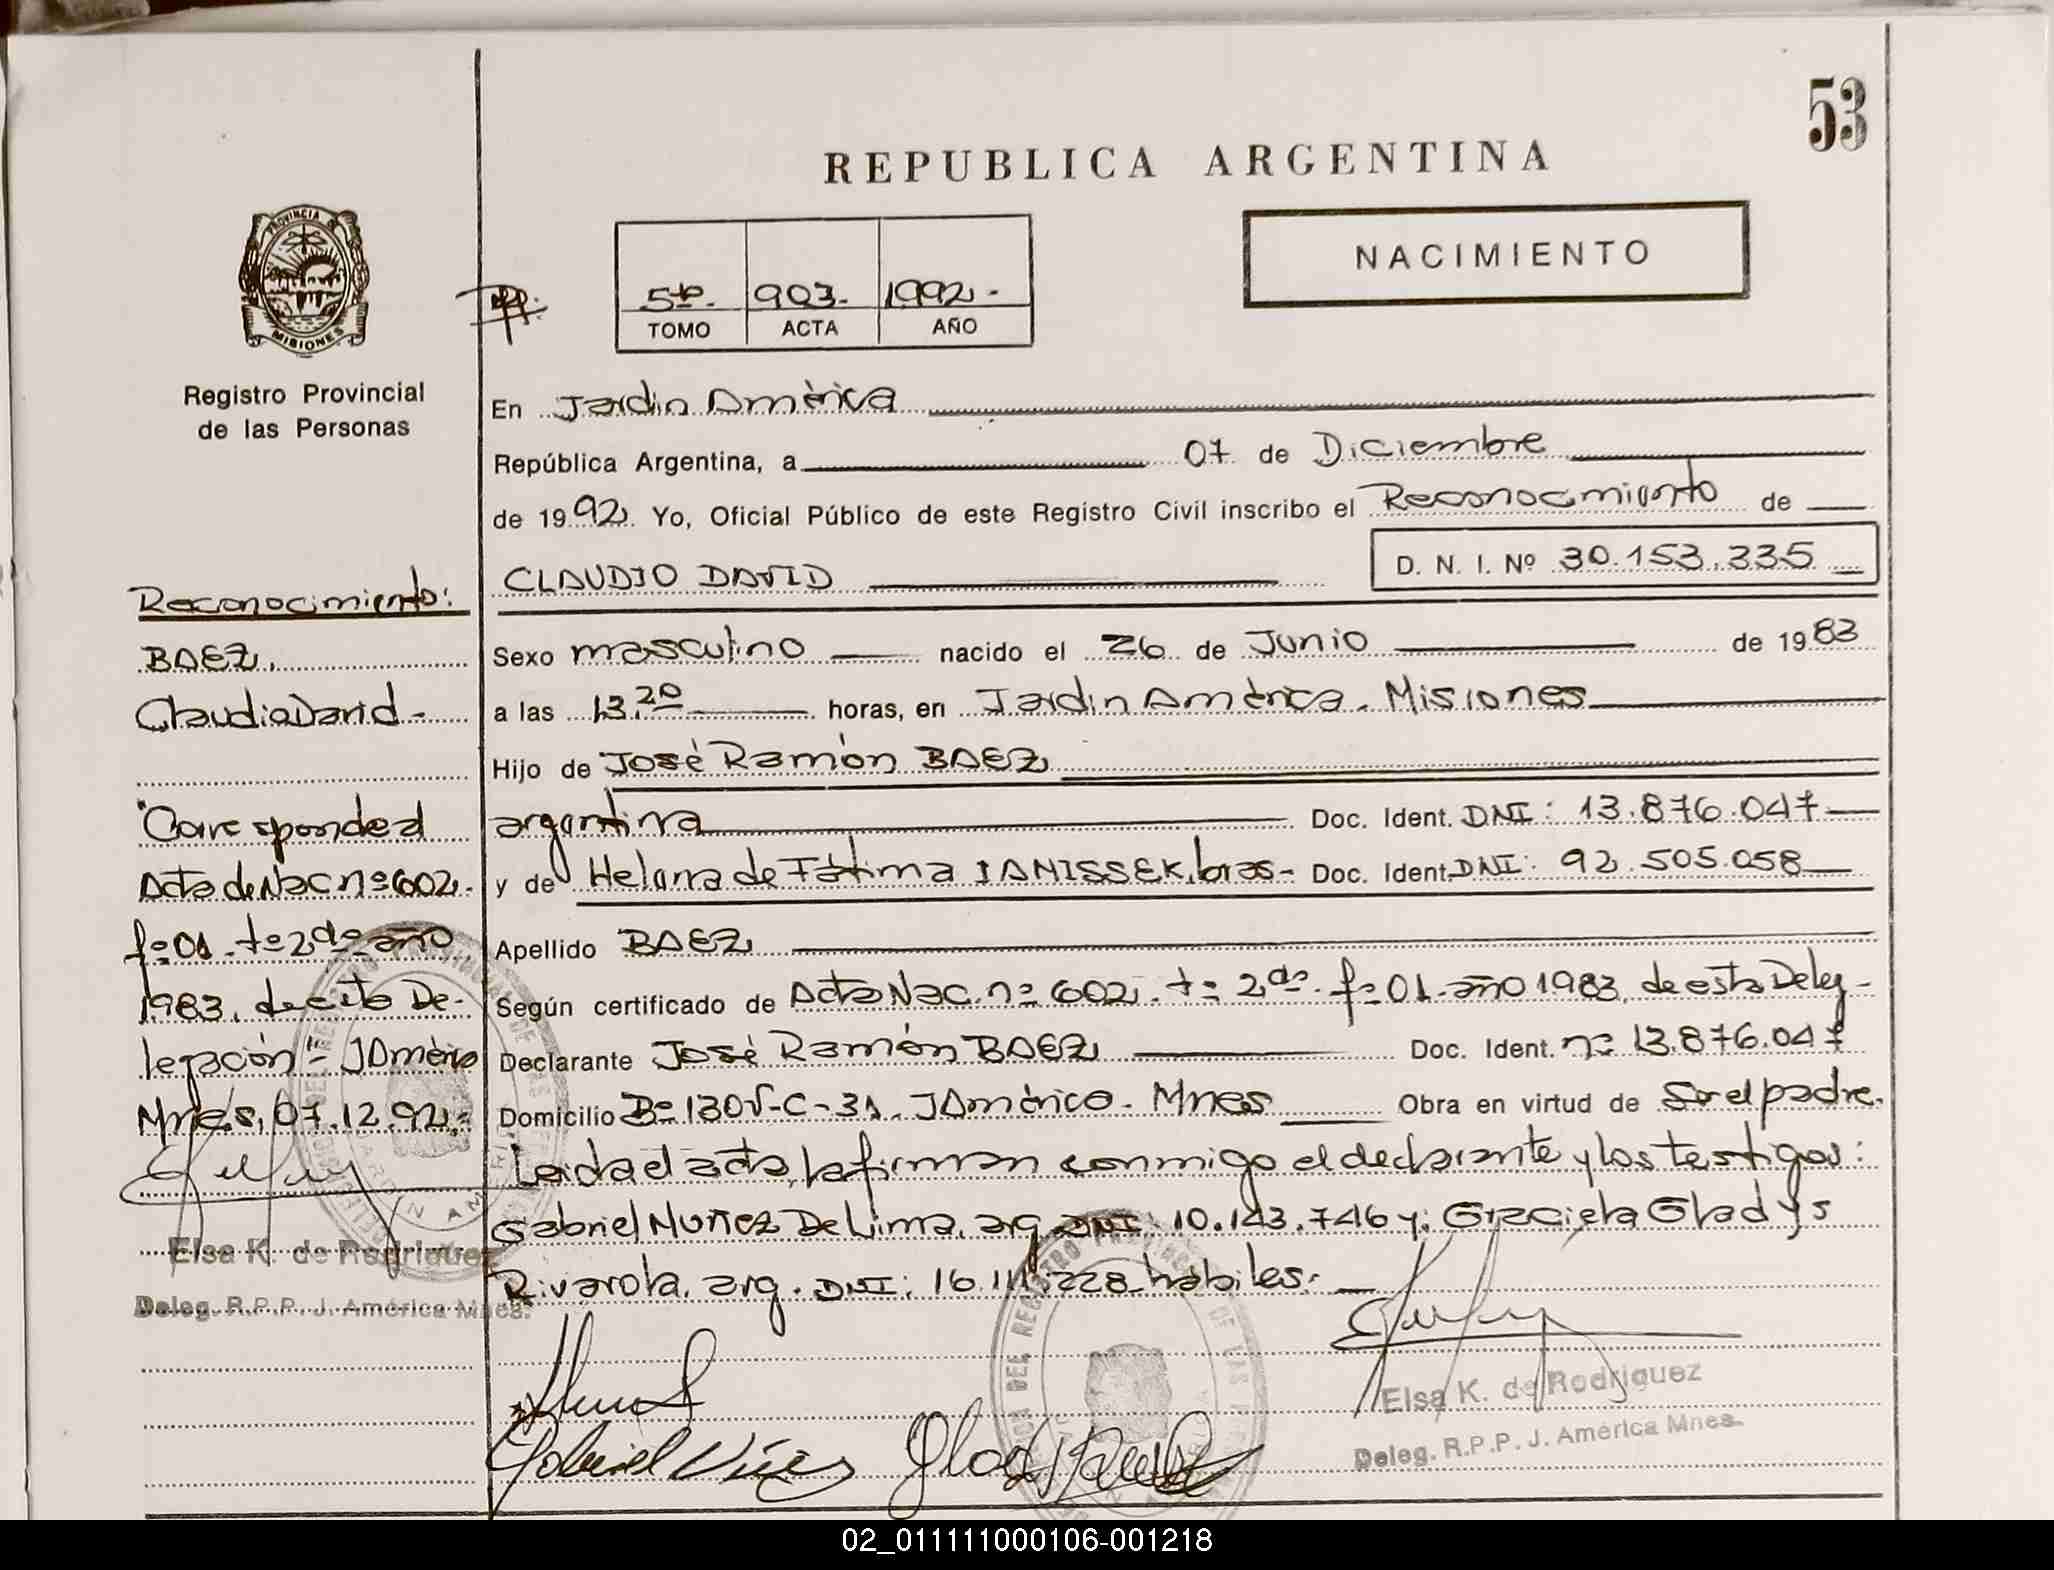 53
REPUBLICA ARGENTINA
PROVINCIA DE
MISIONES
NACIMIENTO
5to. 903.- 1992.-
TOMO ACTA AÑO
Registro Provincial
de las Personas
En Jardin América
República Argentina, a 07 de Diciembre
de 1992. Yo, Oficial Público de este Registro Civil inscribo el Reconocimiento de
CLAUDIO DAVID D. N. I. Nº 30.153.335
Sexo masculino nacido el 26 de Junio de 1983
a las 13.20 horas, en Jardin América. Misiones
Hijo de José Ramón BAEZ
argentina Doc. Ident. DNI: 13.876.047
y de Helena de Fátima IANISSEK, bras- Doc. Ident. DNI: 92.505.058
Apellido BAEZ
Según certificado de Acta Nac. nº 602. tº 2do. fº 01. año 1983, de esta Deleg-
Declarante José Ramón BAEZ Doc. Ident. nº 13.876.047
Domicilio Bº 130V-C-31. J América. Mnes Obra en virtud de Ser el padre.
Leida el acta, la firman conmigo el declarante y los testigos:
Gabriel Nuñez De Lima, arg. DNI: 10.143.746 y: Graciela Gladys
Rivarola, arg. DNI: 16.111.228 hábiles.
Elsa K. de Rodriguez
Deleg. R.P.P. J. América Mnes.
Reconocimiento:
BAEZ,
Claudio David-
"Corresponde al
Acta de Nac nº 602.
fº 01. tº 2do año
1983, de esta De-
legación"- J América
Mnes, 07.12.92.-
Elsa K. de Rodriguez
Deleg. R.P.P. J. América Mnes.
02_011111000106-001218